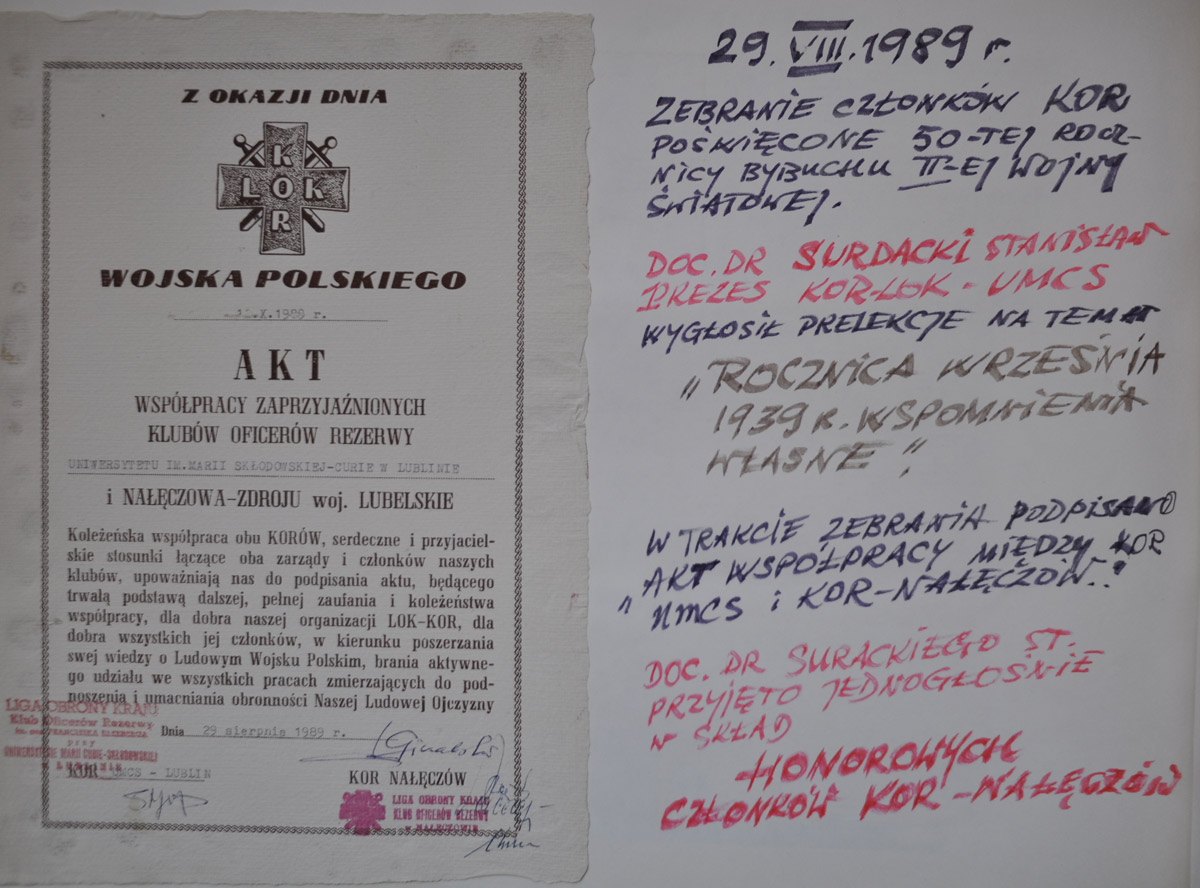 Z OKAZJI DNIA
K
LOK
R
WOJSKA POLSKIEGO
X.1989 r.
AKT
WSPÓŁPRACY ZAPRZYJAŹNIONYCH
KLUBÓW OFICERÓW REZERWY
UNIWERSYTETU IM.MARII SKŁODOWSKIEJ-CURIE W LUBLINIE
i NAŁĘCZOWA-ZDROJU woj. LUBELSKIE
Koleżeńska współpraca obu KORÓW, serdeczne i przyjaciel-
skie stosunki łączące oba zarządy i członków naszych
klubów, upoważniają nas do podpisania aktu, będącego
trwałą podstawą dalszej, pełnej zaufania i koleżeństwa
współpracy, dla dobra naszej organizacji LOK-KOR, dla
dobra wszystkich jej członków, w kierunku poszerzania
swej wiedzy o Ludowym Wojsku Polskim, brania aktywne-
go udziału we wszystkich pracach zmierzających do pod-
noszenia i umacniania obronności Naszej Ludowej Ojczyzny
LIGA OBRONY KRAJU
Klub Oficerów Rezerwy
przy
UNIWERSYTECIE MARII CURIE-SKŁODOWSKIEJ
w LUBLINIE
Dnia 29 sierpnia 1989 r.
KOR UMCS - LUBLIN
KOR NAŁĘCZÓW
LIGA OBRONY KRAJU
KLUB OFICERÓW REZERWY
w NAŁĘCZOWIE
29.VIII.1989 r.
ZEBRANIE CZŁONKÓW KOR
POŚWIĘCONE 50-TEJ ROCZ-
NICY BYBUCHU II-EJ WOJNY
ŚWIATOWEJ.
DOC. DR SURDACKI STANISŁAW
PREZES KOR-LOK-UMCS
WYGŁOSIŁ PRELEKCJE NA TEMAT
"ROCZNICA WRZEŚNIA
1939 R. WSPOMNIENIA
WŁASNE".
W TRAKCIE ZEBRANIA PODPISANO
"AKT WSPÓŁPRACY MIĘDZY KOR
UMCS i KOR-NAŁĘCZÓW."
DOC. DR SURACKIEGO ST.
PRZYJĘTO JEDNOGŁOŚNIE
W SKŁAD
HONOROWYCH
CZŁONKÓW KOR-NAŁĘCZÓW